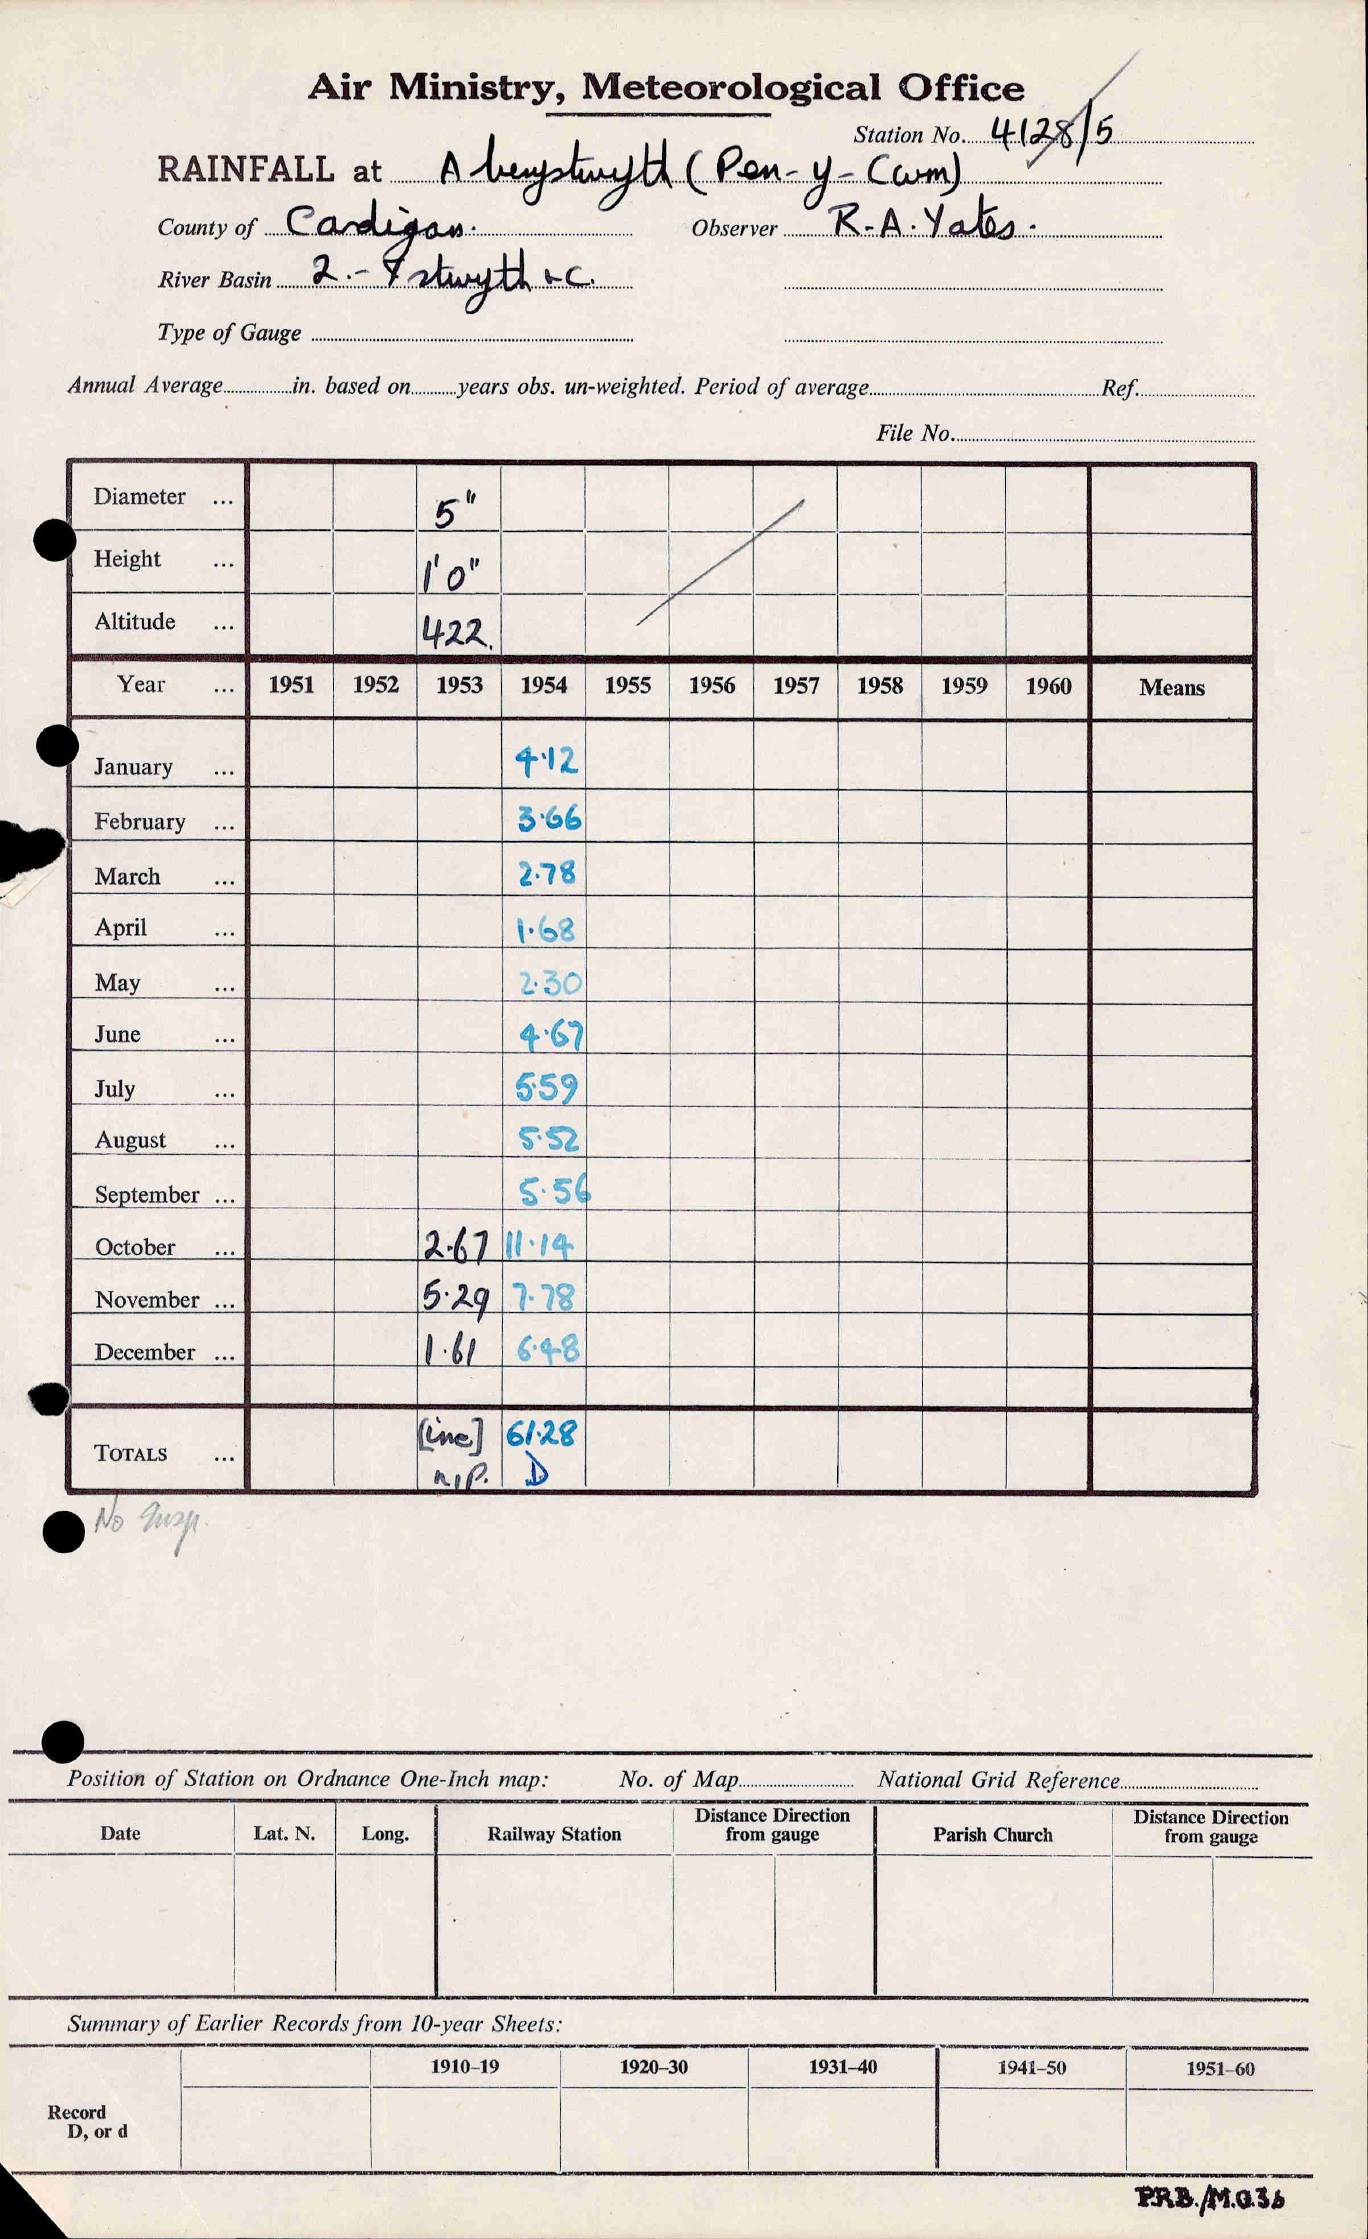 Air Ministry, Meteorological Office
Station No. 4128/5
RAINFALL at Aberystwyth (Pen-y-Cwm)
County of Cardigan. Observer R.A. Yates.
River Basin 2.- Ystwyth &c.
Type of Gauge
Annual Average in. based on years obs. un-weighted. Period of average Ref.
File No.
Diameter ... 5"
Height ... 1'0"
Altitude ... 422.
Year ... 1951 1952 1953 1954 1955 1956 1957 1958 1959 1960 Means
January ... 4.12
February ... 3.66
March ... 2.78
April ... 1.68
May ... 2.30
June ... 4.67
July ... 5.59
August ... 5.52
September ... 5.56
October ... 2.67 11.14
November ... 5.29 7.78
December ... 1.61 6.48
TOTALS ... [inc] 61.28
n.p. D
No Insp.
Position of Station on Ordnance One-Inch map: No. of Map National Grid Reference
Date Lat. N. Long. Railway Station Distance Direction from gauge Parish Church Distance Direction from gauge
Summary of Earlier Records from 10-year Sheets:
1910–19 1920–30 1931–40 1941–50 1951–60
Record
D, or d
P.R.B./M.O.36